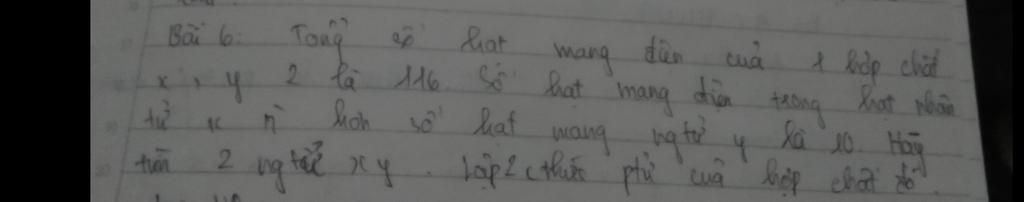 Bài 6: Tổng số hạt mang điện của 1 hợp chất
x, y 2 là 116. Số hạt mang điện trong hạt nhân
tử x n` hơn số hạt mang ngtử y là 10. Hãy
tìm 2 ngtử x y. Lập 2 cthức ptử của hợp chất đó.